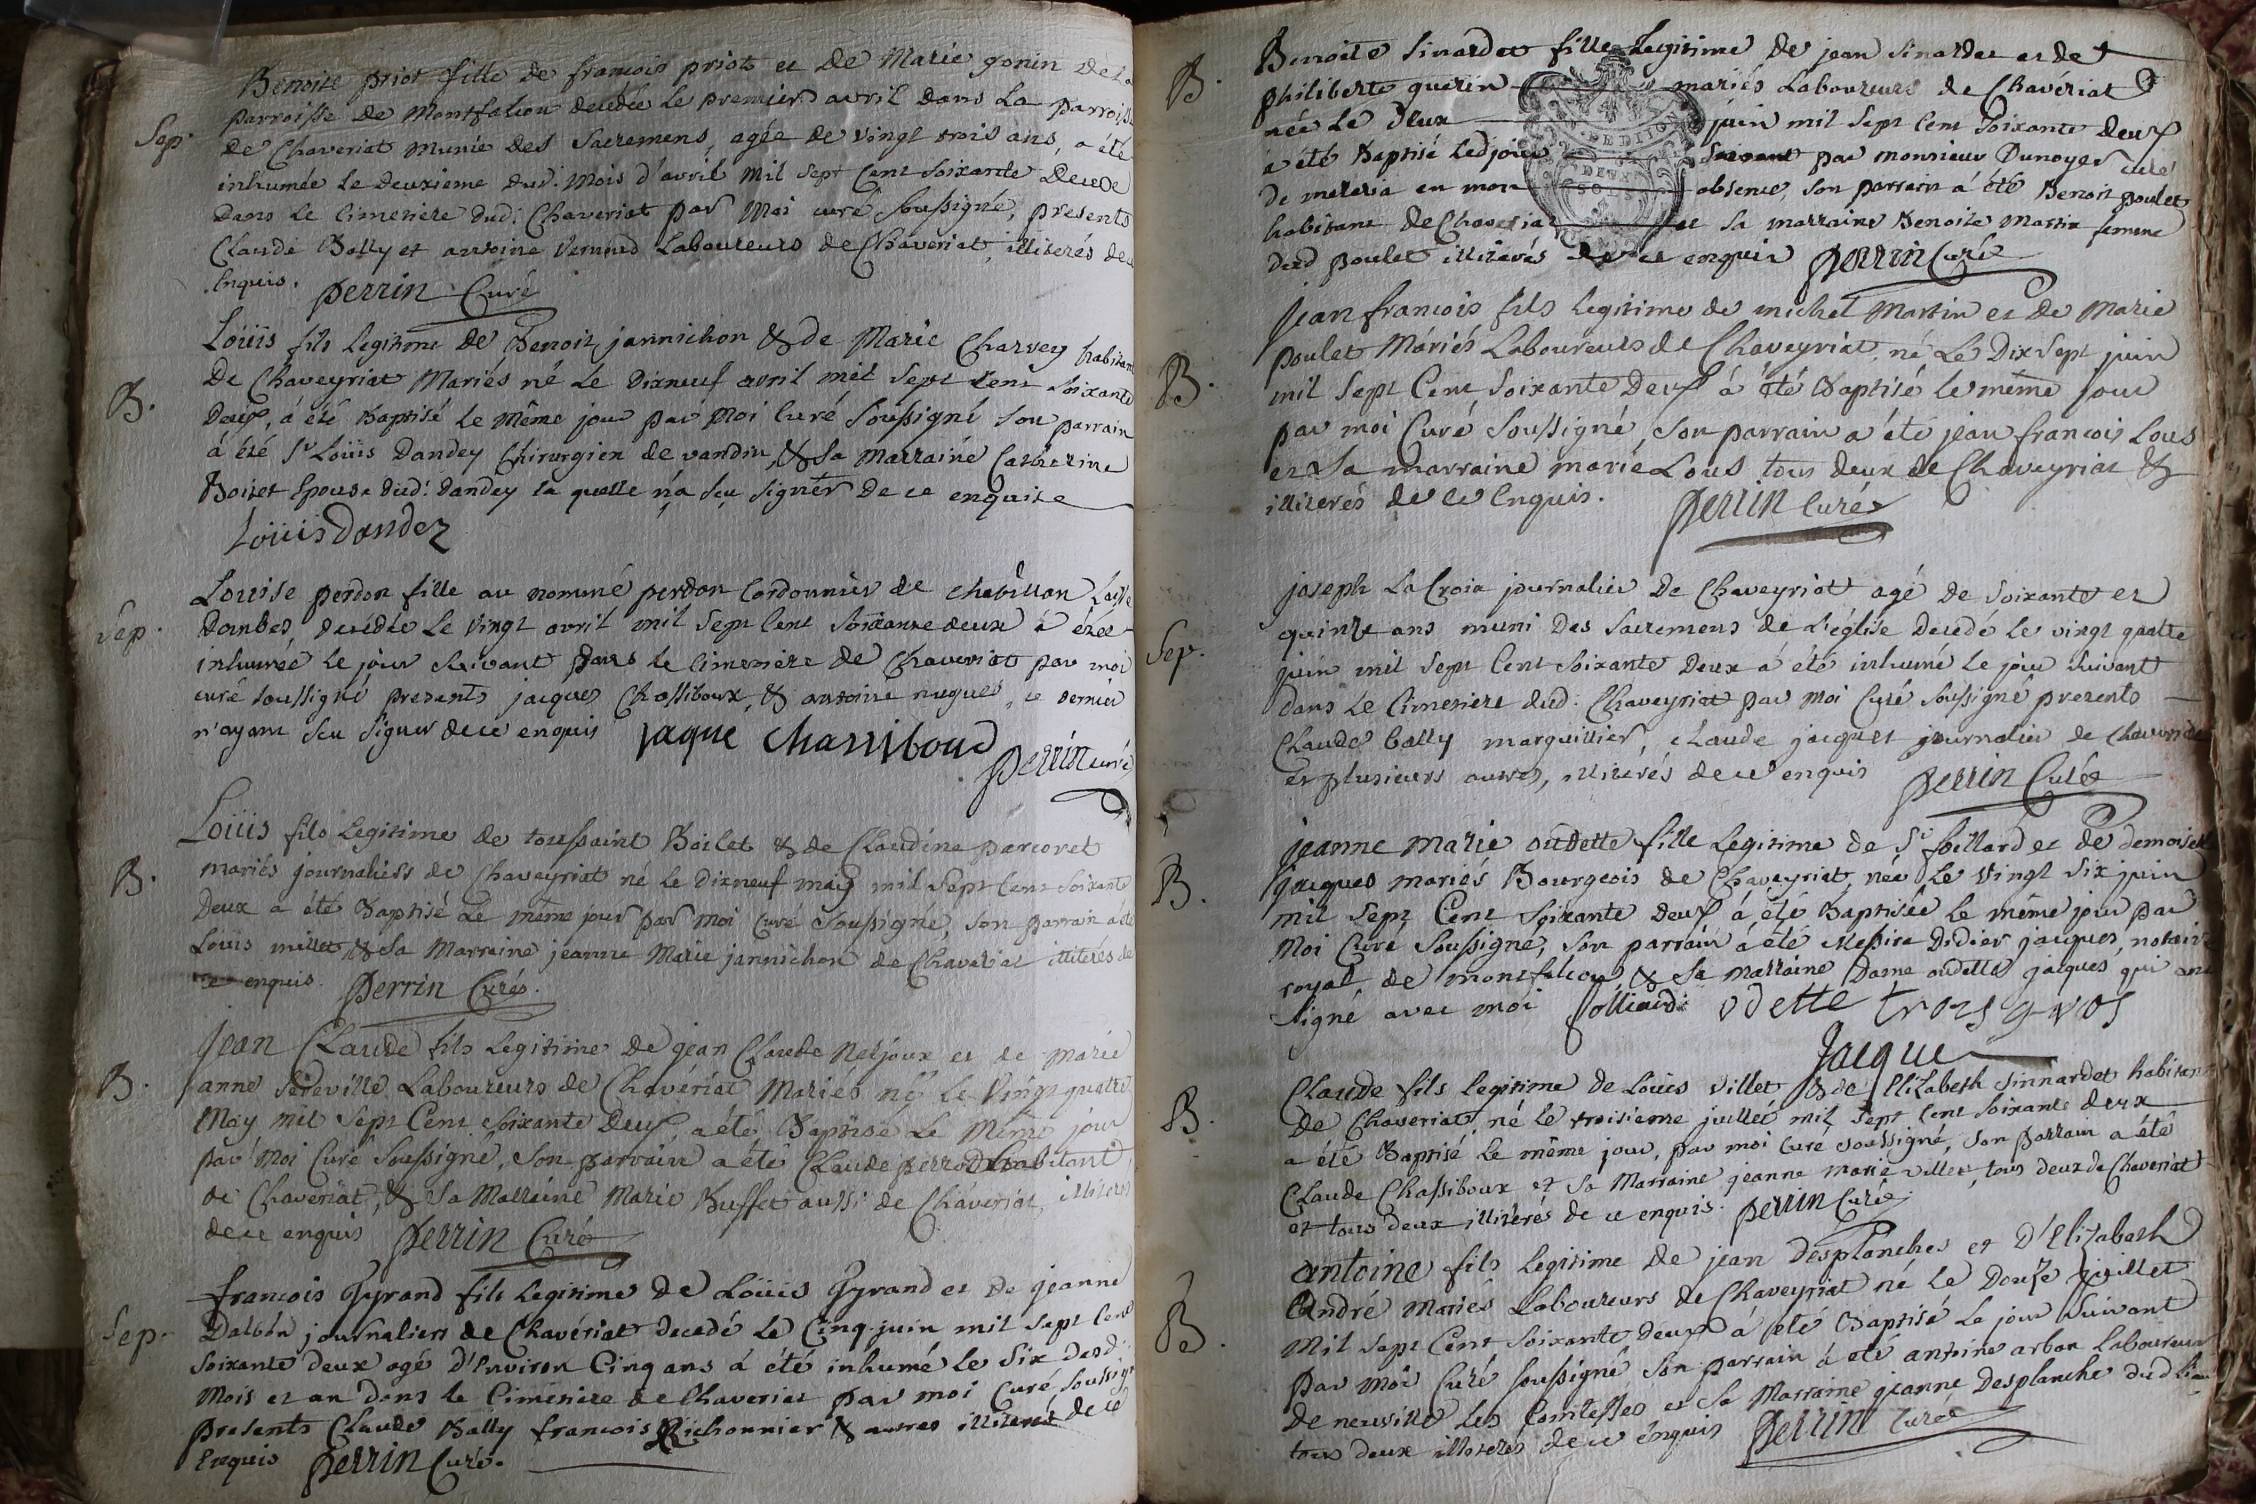 Benoite priot fille de francois priot et de Marie gonin de la
parroisse de Montfalcon decédée le premier avril dans la parroisse
Sep. de Chaveriat munie des Sacremens, agée de vingt trois ans, a été
inhumée le deuxieme dud. mois d'avril mil sept cent soixante deux
dans le Cimetiere dud: Chaveriat par Moi curé soussigné, presents
Claude Bally et antoine Laboureurs de Chaveriat, illiterés de ce
Enquis. perrin Curé
Loüis fils legitime de Benoit jannichon & de Marie Charvey habitans
De Chaveyriat Mariés né le dixneuf avril mil sept cent soixante
B. deux, á été baptisé le même jour par moi Curé soussigné son parrain
á été Sr Loüis Dandey Chirurgien de & sa marraine Catherine
Boizet Epouse dud! Dandey la quelle n'a sçu signer de ce enquise
Loüis Dandez
Louise perdon fille au nommé perdon Cordonnier de
Sep. dombes, decédée le vingt avril mil sept cent soixante deux á étée
inhumée le jour suivant dans le cimetiere de Chaveriat par moi
curé soussigné presents jacques Chassiboux, & antoine nugues, ce dernier
n'ayant sçu signer de ce enquis jaque Chassiboud
perrin curé
Loüis fils legitime de toussaint Boilet & de Claudine parcoret
B. mariés journaliers de Chaveyriat né le dixneuf may mil sept cent soixante
Deux a été Baptisé le même jour par moi curé soussigné, son parrain a été
Loüis millet & sa Marraine jeanne Marie jannichon de Chaveriat illiterés de
ce enquis. perrin Curé.
jean Claude fils legitime de jean Claude Nerjoux et de marie
B. anne Sereville Laboureurs de Chavériat Mariés né le vingt quatre
May mil sept Cent soixante Deux, a été Baptisé le même jour
par moi Curé soussigné, son parrain a été Claude perrod habitant
de Chaveriat, & sa Marraine Marie Buffet aussi de Chaveriat, illiterés
de ce enquis perrin Curé
francois Gyrand fils legitime de Loüis Gyrand et de jeanne
Sep. Dalbon journaliers de Chavériat decedé le Cinq juin mil sept cent
soixante deux agé d'environ Cinq ans á été inhumé le six desd:
mois et an dans le Cimetiere de Chaveriat par moi Curé soussigné
presents Claude Bally francois Richonnier & autres illiterés de ce
Enquis perrin Curé.
B. Benoite Sinardet fille legitime de jean Sinardet et de
philiberte guerin mariés Laboureurs de Chavériat
née le deux juin mil sept cent soixante deux
DEUX SOLS
a été baptisé led jour suivant par monsieur Dunoyer curé
de mezeria en mon absence, son parrain a été Benoit poulet
habitant de Chaveriat et sa marraine Benoite martin femme
dud poulet illiterés de ce enquis perrin Curé
jean francois fils legitime de michel Martin et de Marie
poulet Mariés Laboureurs de Chaveyriat né le dix sept juin
B. mil sept Cent soixante Deux á été Baptisé le même jour
par moi Curé soussigné, son parrain a été jean francois Lous
et sa marraine marie Lous tous deux de Chaveyriat &
illiterés de ce Enquis. perrin Curé
joseph La Croix journalier de Chaveyriat agé de soixante et
quinze ans muni des sacremens de l'église decedé le vingt quatre
Sep. juin mil sept Cent soixante Deux á été inhumé le jour suivant
dans le Cimetiere dud: Chaveyriat par moi Curé soussigné presents
Claude bally marguillier, claude jacquet journalier de Chaveriat
et plusieurs autres, illiterés de ce enquis perrin Curé
jeanne marie oudette fille legitime de Sr follliard et de demoiselle
B. jacques mariés Bourgeois de Chaveyriat, née le vingt six juin
mil sept Cent soixante deux á été Baptisée le même jour par
Moi Curé soussigné, son parrain á été Messire Didier jacques, notaire
royal de montfalcon, & sa marraine Dame oudette jacques qui ont
signé avec moi folliard odette trois gros
Jacque
Claude fils legitime de Loüis villet & de Elizabeth Sinnardet habitans
B. de Chaveriat, né le troisieme juillet mil sept cent soixante deux
a été Baptisé le même jour, par moi curé soussigné, son parrain a été
Claude Chassiboux et sa Marraine jeanne marie villet, tous deux de Chaveriat
et tous deux illiterés de ce enquis. perrin Curé
antoine fils legitime de jean desplanches et d'Elizabeth
B. André Mariés Laboureurs de Chaveyriat né le douze juillet
mil sept Cent soixante deux á été Baptisé le jour suivant
par moi Curé soussigné son parrain á été antoine arban laboureur
de neuville les Comtesses et sa Marraine jeanne Desplanche dud lieu
tous deux illiterés de ce énquis perrin Curé